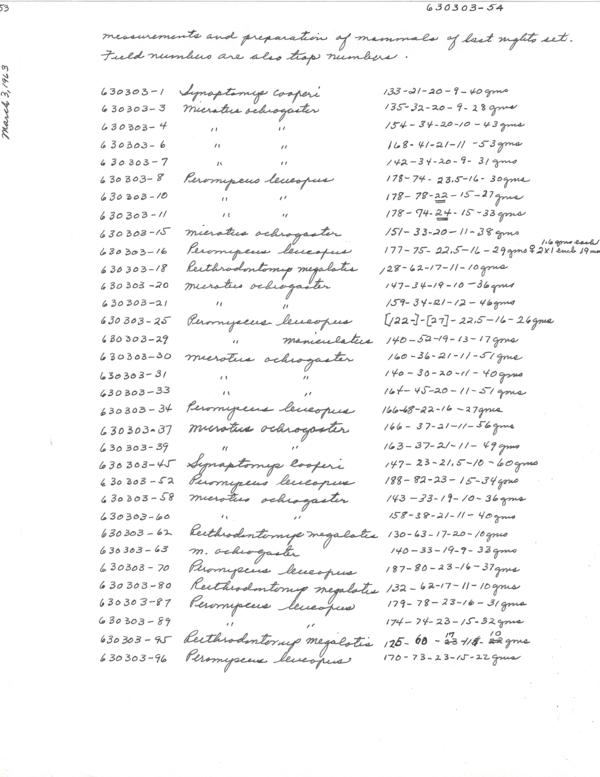 53
630303-54
March 3, 1963
measurements and preparation of mammals of last nights set.
Field numbers are also trap numbers.
630303-1 Synaptomys cooperi 133-21-20-9-40gms
630303-3 Microtus ochrogaster 135-32-20-9-28gms
630303-4 " " 154-34-20-10-43gms
630303-6 " " 168-41-21-11-53gms
630303-7 " " 142-34-20-9-31gms
630303-8 Peromyscus leucopus 178-74-23.5-16-30gms
630303-10 " " 178-78-22-15-27gms
630303-11 " " 178-74-24-15-33gms
630303-15 microtus ochrogaster 151-33-20-11-38gms
630303-16 Peromyscus leucopus 177-75-22.5-16-29gms ♀ 2x1 emb 19mm 1.6gms each
630303-18 Reithrodontomys megalotis 128-62-17-11-10gms
630303-20 microtus ochrogaster 147-34-19-10-36gms
630303-21 " " 159-34-21-12-46gms
630303-25 Peromyscus leucopus [122-]-[27]-22.5-16-26gms
630303-29 " maniculatus 140-52-19-13-17gms
630303-30 microtus ochrogaster 160-36-21-11-51gms
630303-31 " " 140-30-20-11-40gms
630303-33 " " 164-45-20-11-51gms
630303-34 Peromyscus leucopus 166-68-22-16-27gms
630303-37 microtus ochrogaster 166-37-21-11-56gms
630303-39 " " 163-37-21-11-49gms
630303-45 Synaptomys cooperi 147-23-21.5-10-60gms
630303-52 Peromyscus leucopus 188-82-23-15-34gms
630303-58 microtus ochrogaster 143-33-19-10-36gms
630303-60 " " 158-38-21-11-40gms
630303-62 Reithrodontomys megalotis 130-63-17-20-10gms
630303-63 m. ochrogaster 140-33-19-9-33gms
630303-70 Peromyscus leucopus 187-80-23-16-37gms
630303-80 Reithrodontomys megalotis 132-62-17-11-10gms
630303-87 Peromyscus leucopus 179-78-23-16-31gms
630303-89 " " 174-74-23-15-32gms
630303-95 Reithrodontomys megalotis 125-60-17-11-10gms
630303-96 Peromyscus leucopus 170-73-23-15-22gms